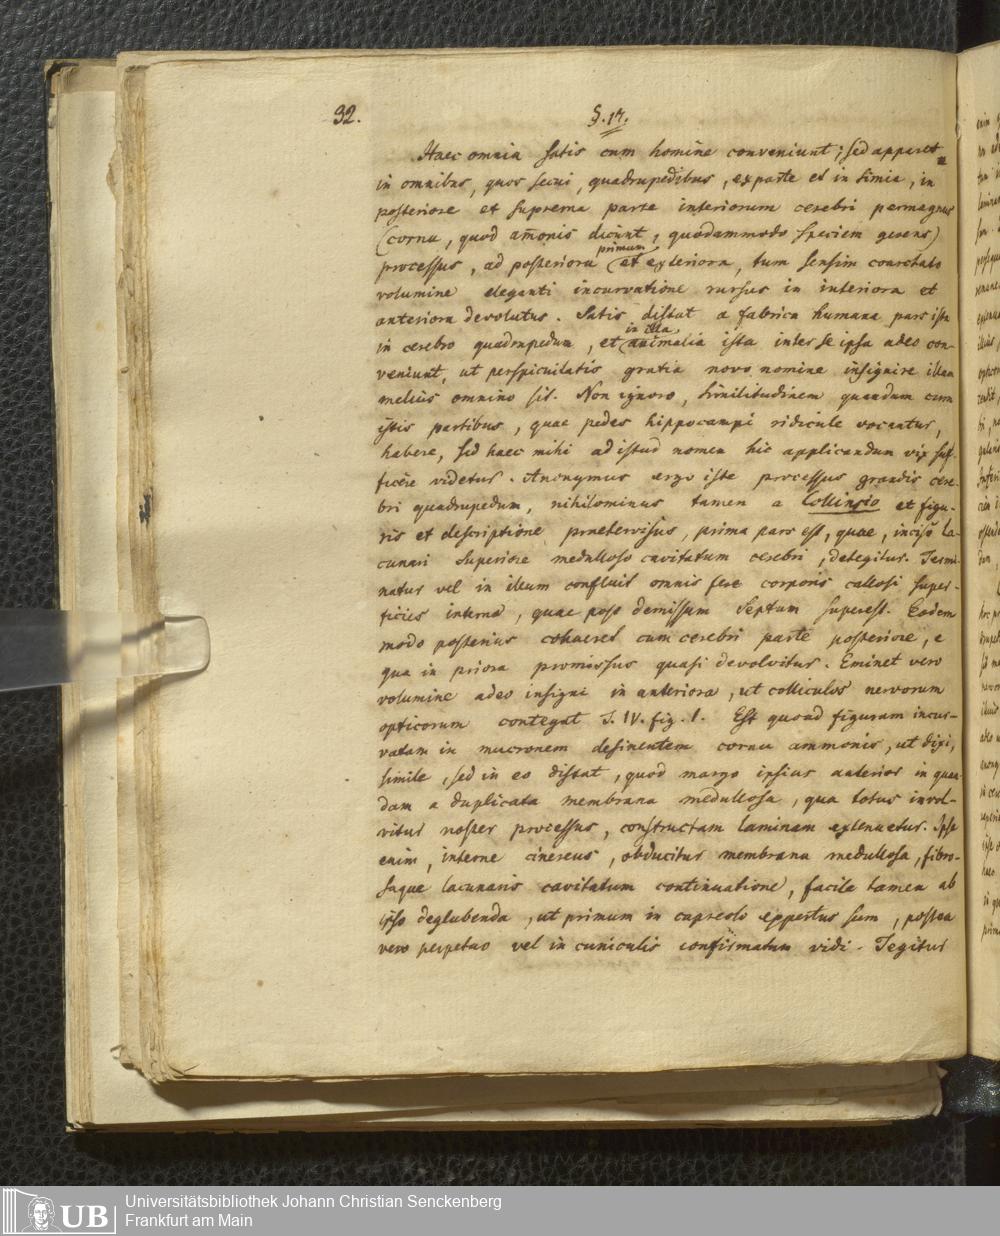 32.
§. 17.
Haec omnia satis cum homine conveniunt; sed apparet
in omnibus, quos secui, quadrupedibus, ex parte et in simia, in
posteriore et suprema parte interiorum cerebri permagnus
(cornu, quod am̄onis dicunt, quodammodo speciem gerens)
primum
processus, ad posteriora et exteriora, tum sensim coarctato
volumine eleganti incurvatione rursus in interiora et
anteriora devolutus. Satis distat a fabrica humana pars ista
in illa
in cerebro quadrupedum, et animalia ista inter se ipsa adeo con-
veniunt, ut perspicuitatis gratia novo nomine insignire illam
melius omnino sit. Non ignoro, similitudinem quandam cum
istis partibus, quae pedes hippocampi ridicule vocantur,
habere, sed haec mihi ad istud nomen hic applicandum vix suf-
ficere videtur. Anonymus ergo iste processus grandis cere-
bri quadrupedum, nihilominus tamen a Collinsio et figu-
ris et descriptione praetervisus, prima pars est, quae, inciso la-
cunari superiore medulloso cavitatum cerebri, detegitur. Termi-
natur vel in illum confluit omnis fere corporis callosi super-
ficies interna, quae post demissum septum superest. Eodem
modo posterius cohaeret cum cerebri parte posteriore, e
qua in priora promissus quasi devolvitur. Eminet vero
volumine adeo insigni in anteriora, ut colliculos nervorum
opticorum contegat T. IV. fig. 1. Est quoad figuram incur-
vatam in mucronem desinentem cornu ammonis, ut dixi,
simile, sed in eo distat, quod margo ipsius anterior in quen-
dam a duplicata membrana medullosa, qua totus invol-
vitur noster processus, constructam laminam extenuetur. Ipse
enim, interne cinereus, obducitur membrana medullosa, fibro-
saque lacunaris cavitatum continuatione, facile tamen ab
ipso deglubenda, ut primum in capreolo expertus sum, postea
vero perpetuo vel in cuniculis confirmatum vidi. Tegitur
Universitätsbibliothek Johann Christian Senckenberg
Frankfurt am Main
UB